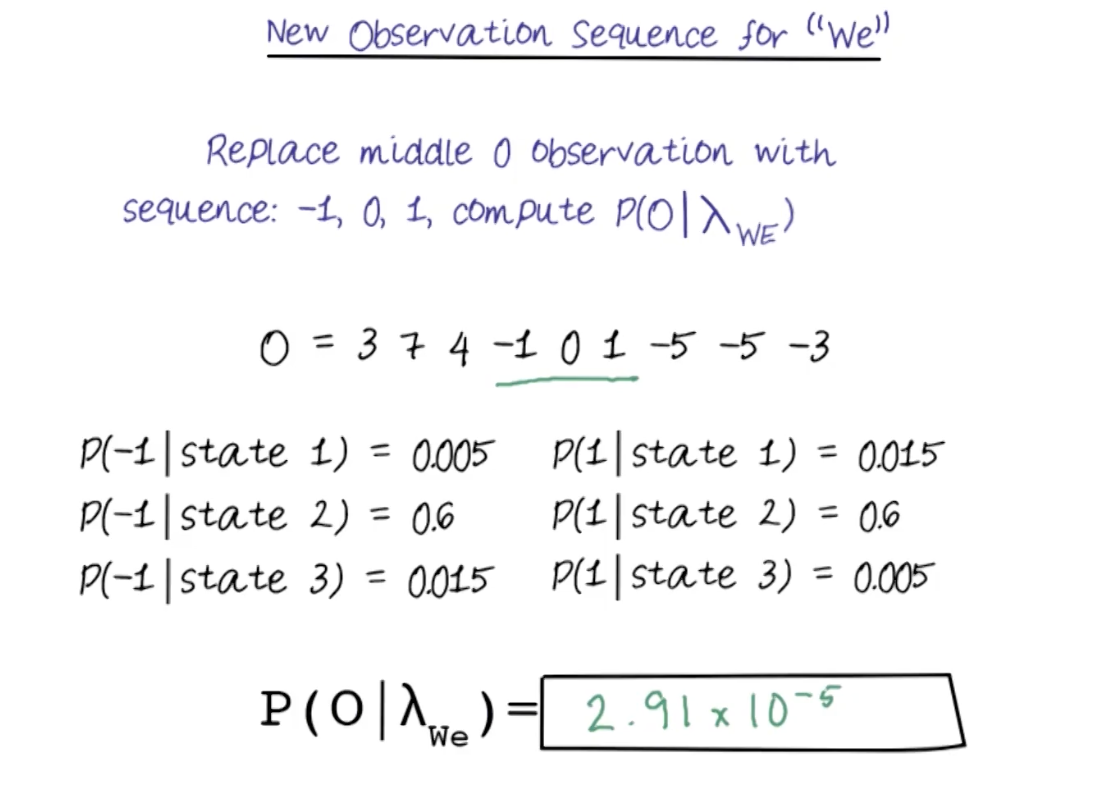 New Observation Sequence for "We"
Replace middle 0 observation with
sequence: -1, 0, 1, compute P(O|λ WE)
O = 3 7 4 -1 0 1 -5 -5 -3
P(-1|state 1) = 0.005 P(1|state 1) = 0.015
P(-1|state 2) = 0.6 P(1|state 2) = 0.6
P(-1|state 3) = 0.015 P(1|state 3) = 0.005
P(O|λ We) = 2.91 x 10⁻⁵